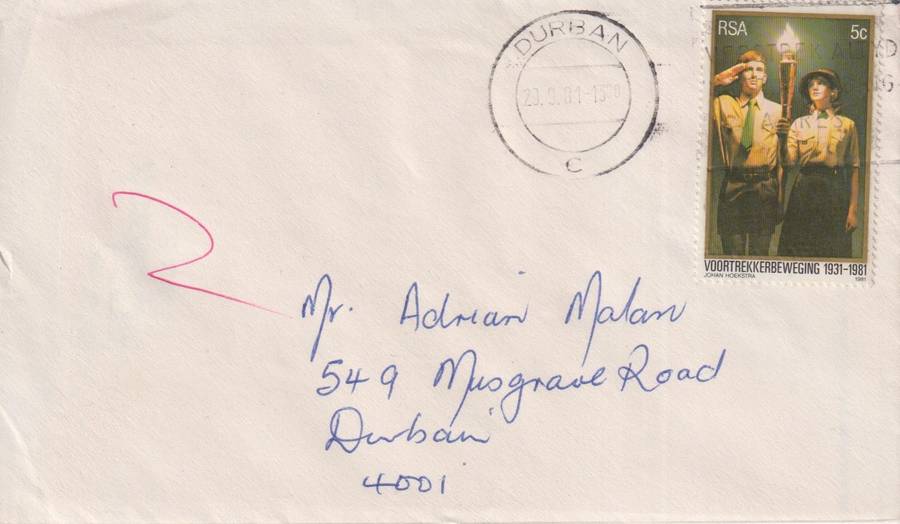 DURBAN
23.9.81-13⁰⁰
C
RSA 5c
VOORTREKKERBEWEGING 1931-1981
JOHAN HOEKSTRA 1981
2
Mr. Adrian Malan
549 Musgrave Road
Durban
4001